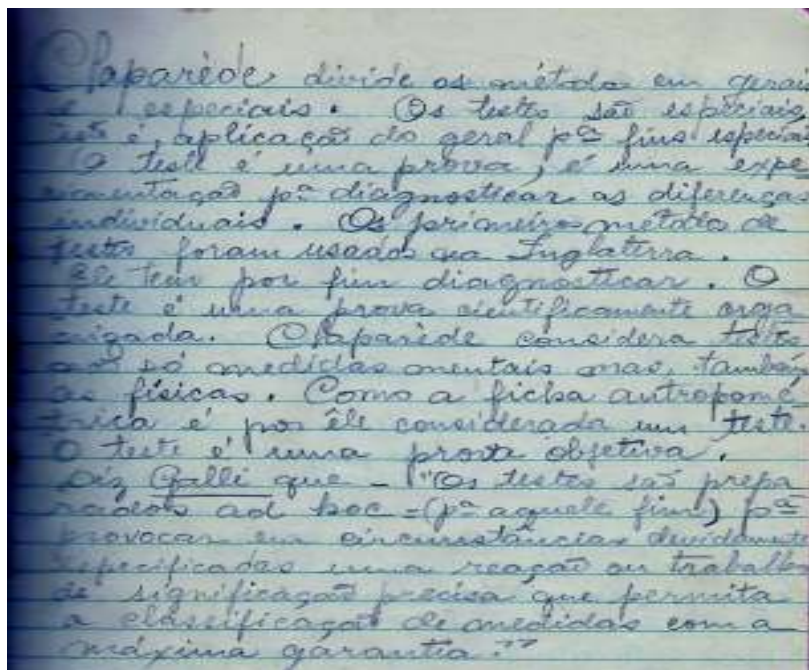 Claparède divide os método em gerais
e especiais. Os testes são especiais,
teste é, aplicação do geral pª fins especiais
O teste é uma prova, é uma expe
rimentação pª diagnosticar as diferenças
individuais. Os primeiros método de
testes foram usados na Inglaterra.
Ele tem por fim diagnosticar. O
teste é uma prova cientificamente orga
nizada. Claparède considera testes
não só medidas mentais mas, também
as físicas. Como a ficha antropomé
trica é por êle considerada um teste.
O teste é uma prova objetiva.
Diz Galli que - "Os testes são prepa
rados ad hoc = (pª aquele fim) pª
provocar em circunstâncias devidamente
especificadas uma reação ou trabalho
de significação precisa que permita
a classificação de medidas com a
máxima garantia."